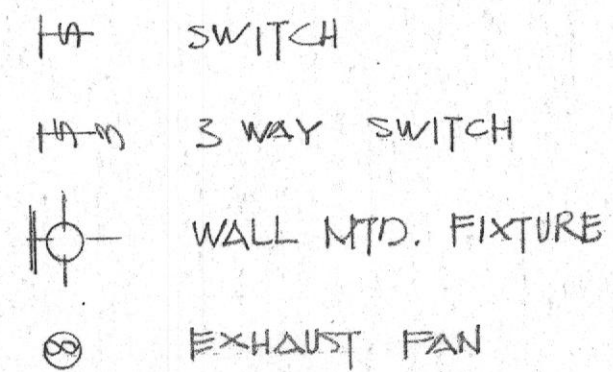 S SWITCH
S3 3 WAY SWITCH
WALL MTD. FIXTURE
8 EXHAUST FAN